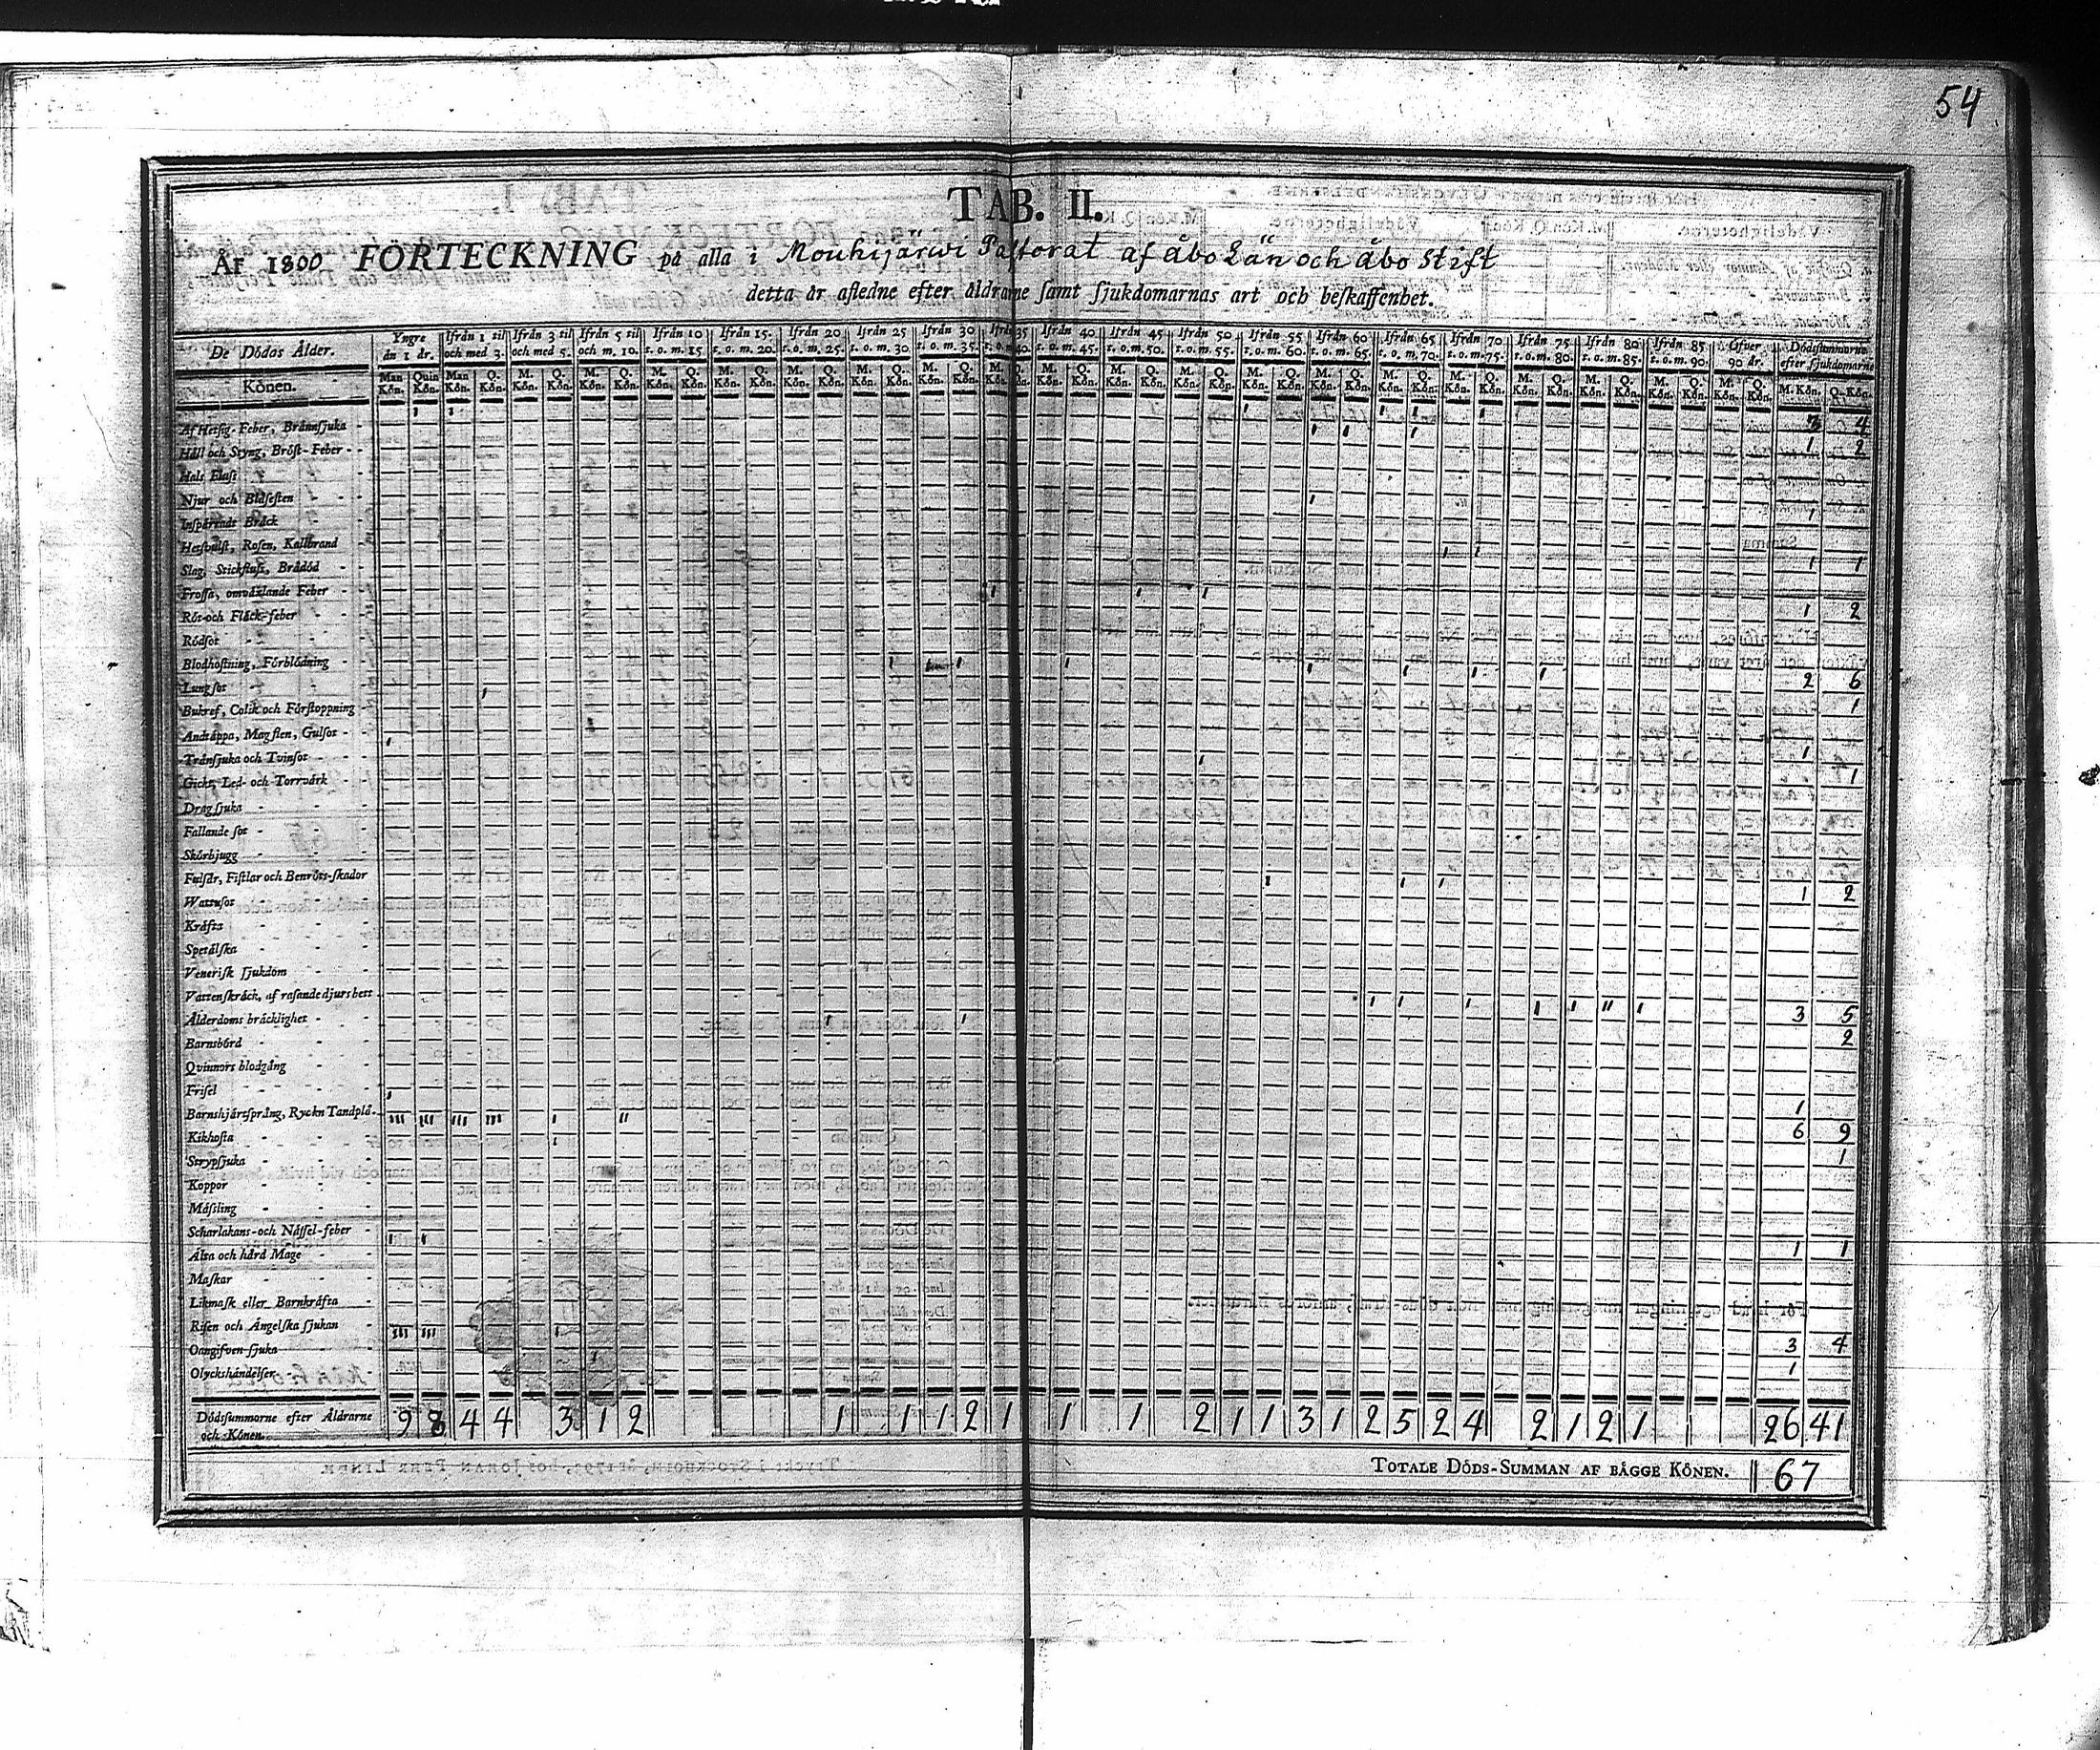 54
TAB. II.
År 1800 FÖRTECKNING på alla i Mouhijärwi Pastorat af åbo Län och åbo Stift
detta år afledne efter åldrarne samt sjukdomarnas art och beskaffenhet.
De Dödas Ålder. Yngre än 1 år. Ifrån 1 til och med 3. Ifrån 3 til och med 5. Ifrån 5 til och m. 10. Ifrån 10 t. o. m. 15. Ifrån 15. t. o. m. 20. Ifrån 20 t. o. m. 25. Ifrån 25 t. o. m. 30. Ifrån 30 t. o. m. 35. Ifrån 35 t. o. m. 40. Ifrån 40 t. o. m. 45. Ifrån 45 t. o. m. 50. Ifrån 50 t. o. m. 55. Ifrån 55 t. o. m. 60. Ifrån 60 t. o. m. 65. Ifrån 65 t. o. m. 70. Ifrån 70 t. o. m. 75. Ifrån 75 t. o. m. 80. Ifrån 80 t. o. m. 85. Ifrån 85 t. o. m. 90. Öfver 90 år. Dödssummorne efter sjukdomarne
Könen. Man Kön. Quin Kön. Man Kön. Q. Kön. M. Kön. Q. Kön. M. Kön. Q. Kön. M. Kön. Q. Kön. M. Kön. Q. Kön. M. Kön. Q. Kön. M. Kön. Q. Kön. M. Kön. Q. Kön. M. Kön. Q. Kön. M. Kön. Q. Kön. M. Kön. Q. Kön. M. Kön. Q. Kön. M. Kön. Q. Kön. M. Kön. Q. Kön. M. Kön. Q. Kön. M. Kön. Q. Kön. M. Kön. Q. Kön. M. Kön. Q. Kön. M. Kön. Q. Kön. M. Kön. Q. Kön. M. Kön. Q. Kön.
Af Hetsig-Feber, Brännsjuka 1 1 1 1 1 1 3 4
Håll och Styng, Bröst-Feber 1 1 1 1 2
Hals Flass
Njur och Blåsesten
Inspärradt Bråck 1 1
Hetsvulst, Rosen, Kallbrand
Slag, Stickfluss, Brådöd 1 1 1 1
Frossa, omväxlande Feber
Röt-och Fläck-feber 1 1 1 1 2
Rödsot
Blodhostning, Förblödning
Lungsot 1 1 1 1 1 1 1 2 6
Bukref, Colik och Förstoppning 1 1
Andtäppa, Magsten, Gulsot
Trånsjuka och Tvinsot 1 1
Gickt, Led- och Torrvärk 1 1
Dragsjuka
Fallande sot
Skörbjugg
Fulsår, Fistlar och Benröts-skador
Wattusot 1 1 1 1 2
Kräfta
Spetälska
Venerisk sjukdom
Vattenskräck, af rasande djurs bett
Ålderdoms bräcklighet 1 1 1 11 1 11 1 3 5
Barnsbörd 1 1 2
Qvinnors blodgång
Frisel
Barnshjärtsprång, Ryckn Tandplå. 1 1
Kikhosta 111 111 111 111 1 11 6 9
Strypsjuka 1 1
Koppor
Mässling
Scharlakans-och Nässel-feber
Älta och hård Mage 1 1 1 1
Maskar
Likmask eller Barnkräfta
Risen och Ängelska sjukan
Oangifven sjuka 111 111 1 3 4
Olyckshändelser 1 1
Dödssummorne efter Åldrarne och Könen. 9 8 4 4 3 1 2 1 1 1 2 1 1 1 2 1 1 3 1 2 5 2 4 2 1 2 1 26 41
TOTALE DÖDS-SUMMAN AF BÅGGE KÖNEN. 67